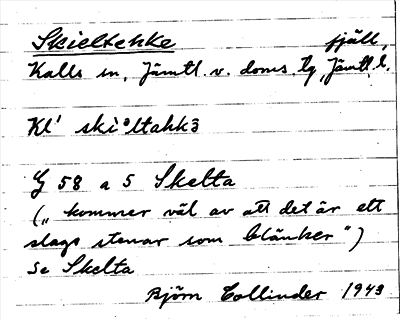 Skieltehke fjäll,
Kalls sn, Jämtl. v. doms. lg, Jämtl. l.
Kl' ski͔ltahkʒ
G 58 a 5 Skelta
(„ kommer väl av att det är ett
slags stenar som blänker")
Se Skelta
Björn Collinder 1943